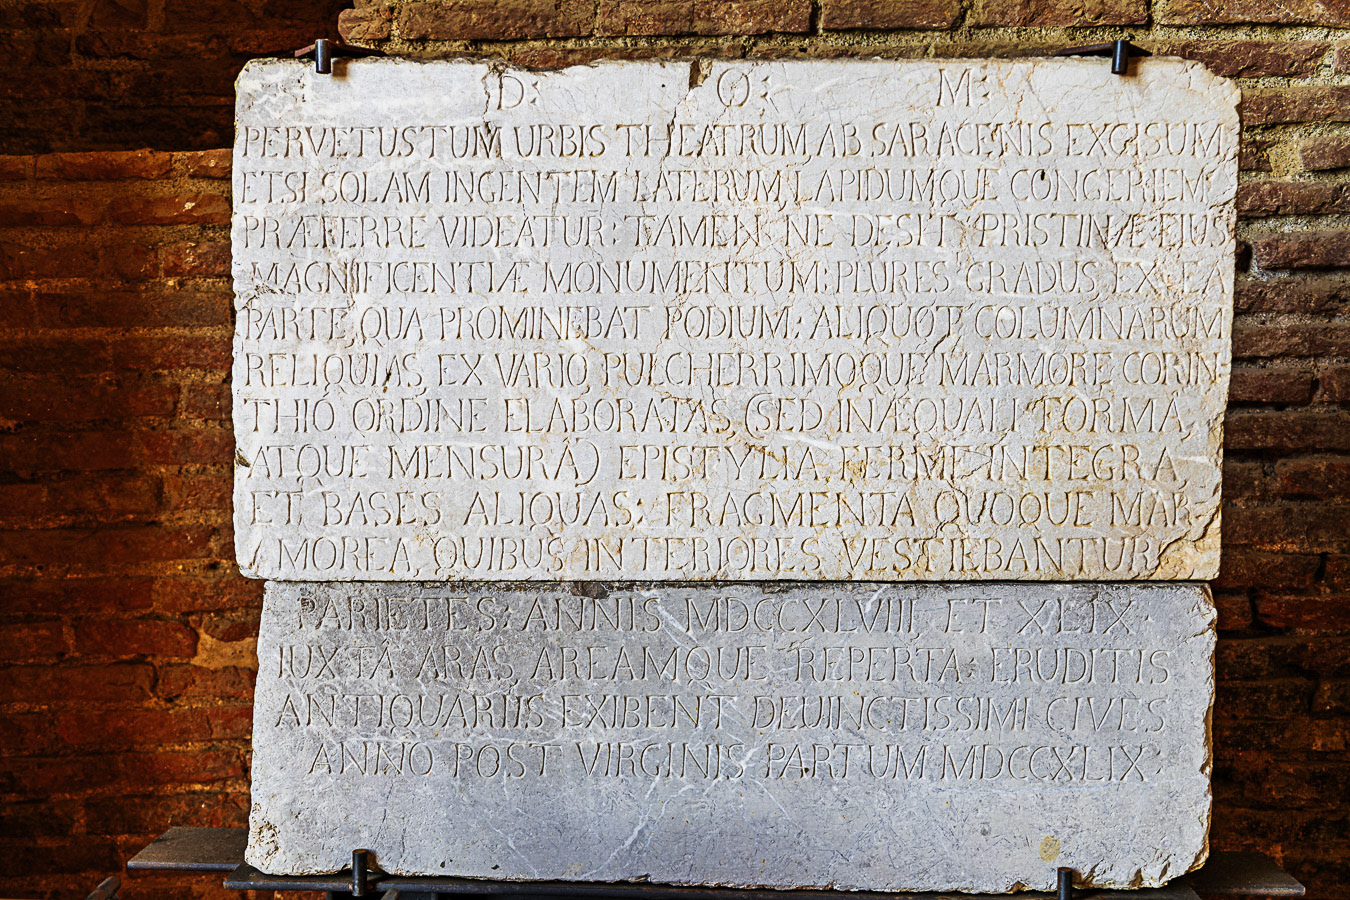 D: O: M:
PERVETUSTUM URBIS THEATRUM, AB SARACENIS EXCISUM,
ETSI SOLAM INGENTEM LATERUM, LAPIDUMQUE CONGERIEM
PRÆFERRE VIDEATUR: TAMEN NE DESIT PRISTINÆ EIUS
MAGNIFICENTIÆ MONUMENTUM: PLURES GRADUS EX EA
PARTE, QUA PROMINEBAT PODIUM: ALIQUOT COLUMNARUM
RELIQUIAS, EX VARIO, PULCHERRIMOQUE MARMORE CORIN
THIO ORDINE ELABORATAS (SED INÆQUALI FORMA,
ATQUE MENSURA) EPISTYLIA FERME INTEGRA
ET BASES ALIQUAS: FRAGMENTA QUOQUE MAR-
MOREA, QUIBUS INTERIORES VESTIEBANTUR
PARIETES: ANNIS MDCCXLVIII, ET XLIX
IUXTA ARAS, AREAMQUE REPERTA: ERUDITIS
ANTIQUARIIS EXIBENT DEUINCTISSIMI CIVES
ANNO POST VIRGINIS PARTUM MDCCXLIX